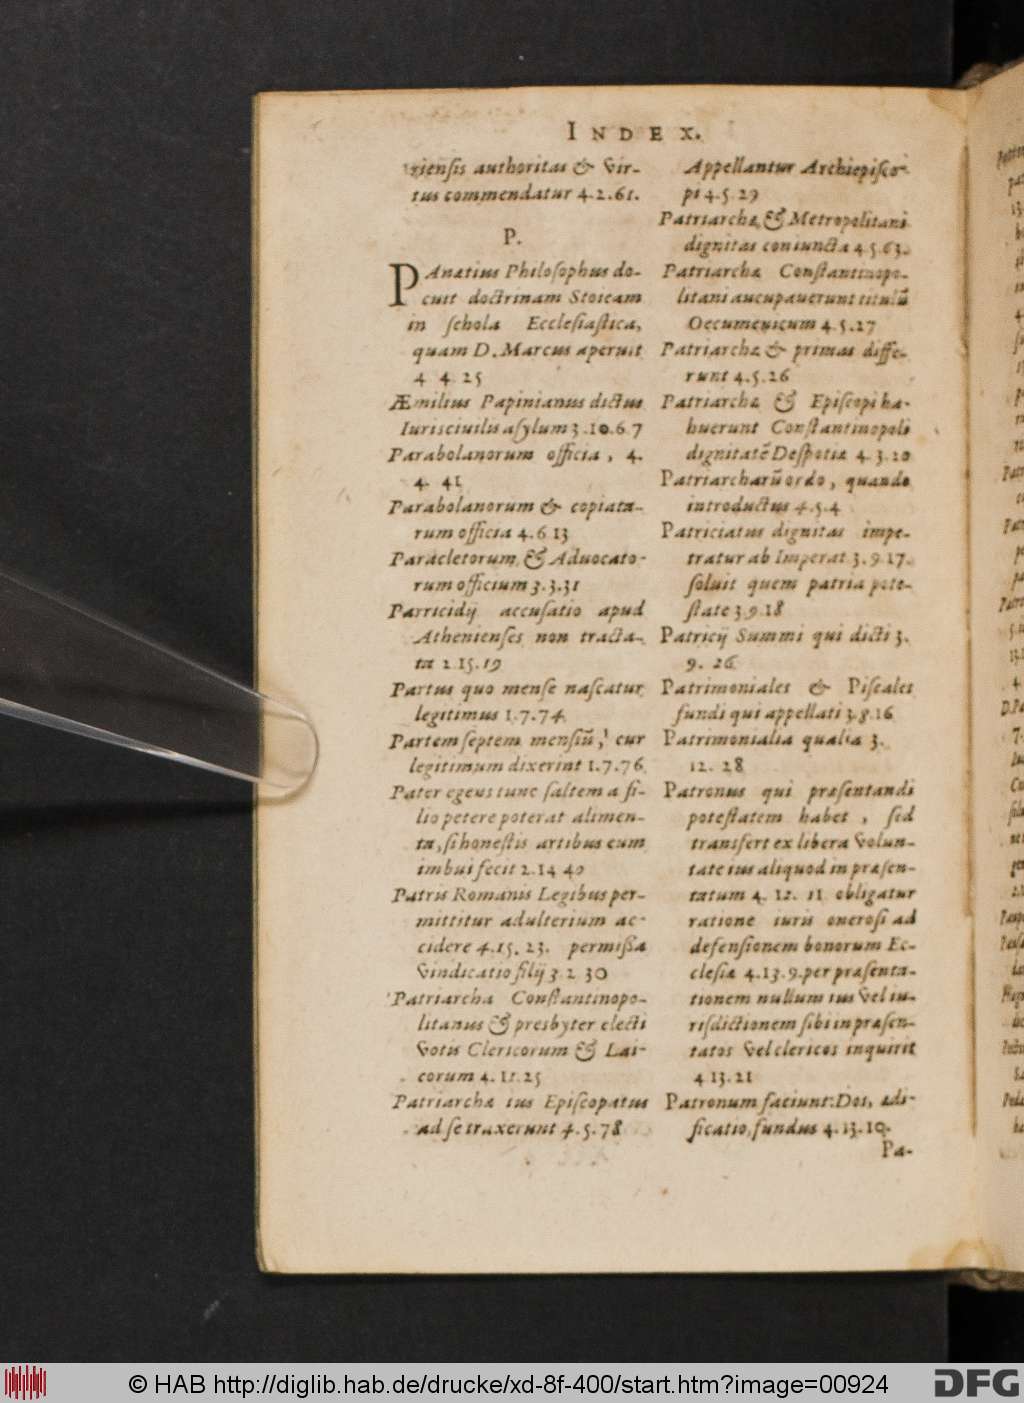 INDEX.
ziensis authoritas & vir-
tus commendatur 4.2.61.
P.
PAnætius Philosophus do-
cuit doctrinam Stoicam
in schola Ecclesiastica,
quam D. Marcus aperuit
4 4 25
Æmilius Papinianus dictus
Iuris ciuilis asylum 3.10.67
Parabolanorum officia, 4.
4. 41
Parabolanorum & copiata-
rum officia 4.6 13
Paracletorum & Aduocato-
rum officium 3.3.31
Parricidij accusatio apud
Athenienses non tracta-
ta 2 15.19
Partus quo mense nascatur
legitimus 1.7.74
Partem septem mensiū, cur
legitimum dixerint 1.7.76
Pater egens tunc saltem a fi-
lio petere poterat alimen-
ta, si honestis artibus eum
imbui fecit 2.14 40
Patris Romanis Legibus per-
mittitur adulterium ac-
cidere 4.15. 23. permissa
vindicatio filij 3 2 30
Patriarcha Constantinopo-
litanus & presbyter electi
votis Clericorum & Lai-
corum 4.11.25
Patriarchæ ius Episcopatus
ad se traxerunt 4.5.78
Appellantur Archiepisco-
pi 4.5.29
Patriarchæ & Metropolitani
dignitas coniuncta 4.5.63.
Patriarchæ Constantinopo-
litani aucupauerunt titulū
Oecumenicum 4.5.27
Patriarcha & primas diffe-
runt 4.5.26
Patriarchæ & Episcopi ha-
buerunt Constantinopoli
dignitatē Despotiæ 4.3.20
Patriarcharū ordo, quando
introductus 4.5.4
Patriciatus dignitas impe-
tratur ab Imperat 3.9.17.
soluit quem patria pote-
state 3.9.18
Patricij Summi qui dicti 3.
9. 26
Patrimoniales & Fiscales
fundi qui appellati 3.8.16
Patrimonialia qualia 3.
12. 28
Patronus qui præsentandi
potestatem habet, sed
transfert ex libera volun-
tate ius aliquod in præsen-
tatum 4. 12. 11 obligatur
ratione iuris onerosi ad
defensionem bonorum Ec-
clesiæ 4.13.9. per præsenta-
tionem nullum ius vel iu-
risdictionem sibi in præsen-
tatos vel clericos inquirit
4 13.21
Patronum faciunt: Dos, ædi-
ficatio, fundus 4.13.10.
Pa-
© HAB http://diglib.hab.de/drucke/xd-8f-400/start.htm?image=00924
DFG